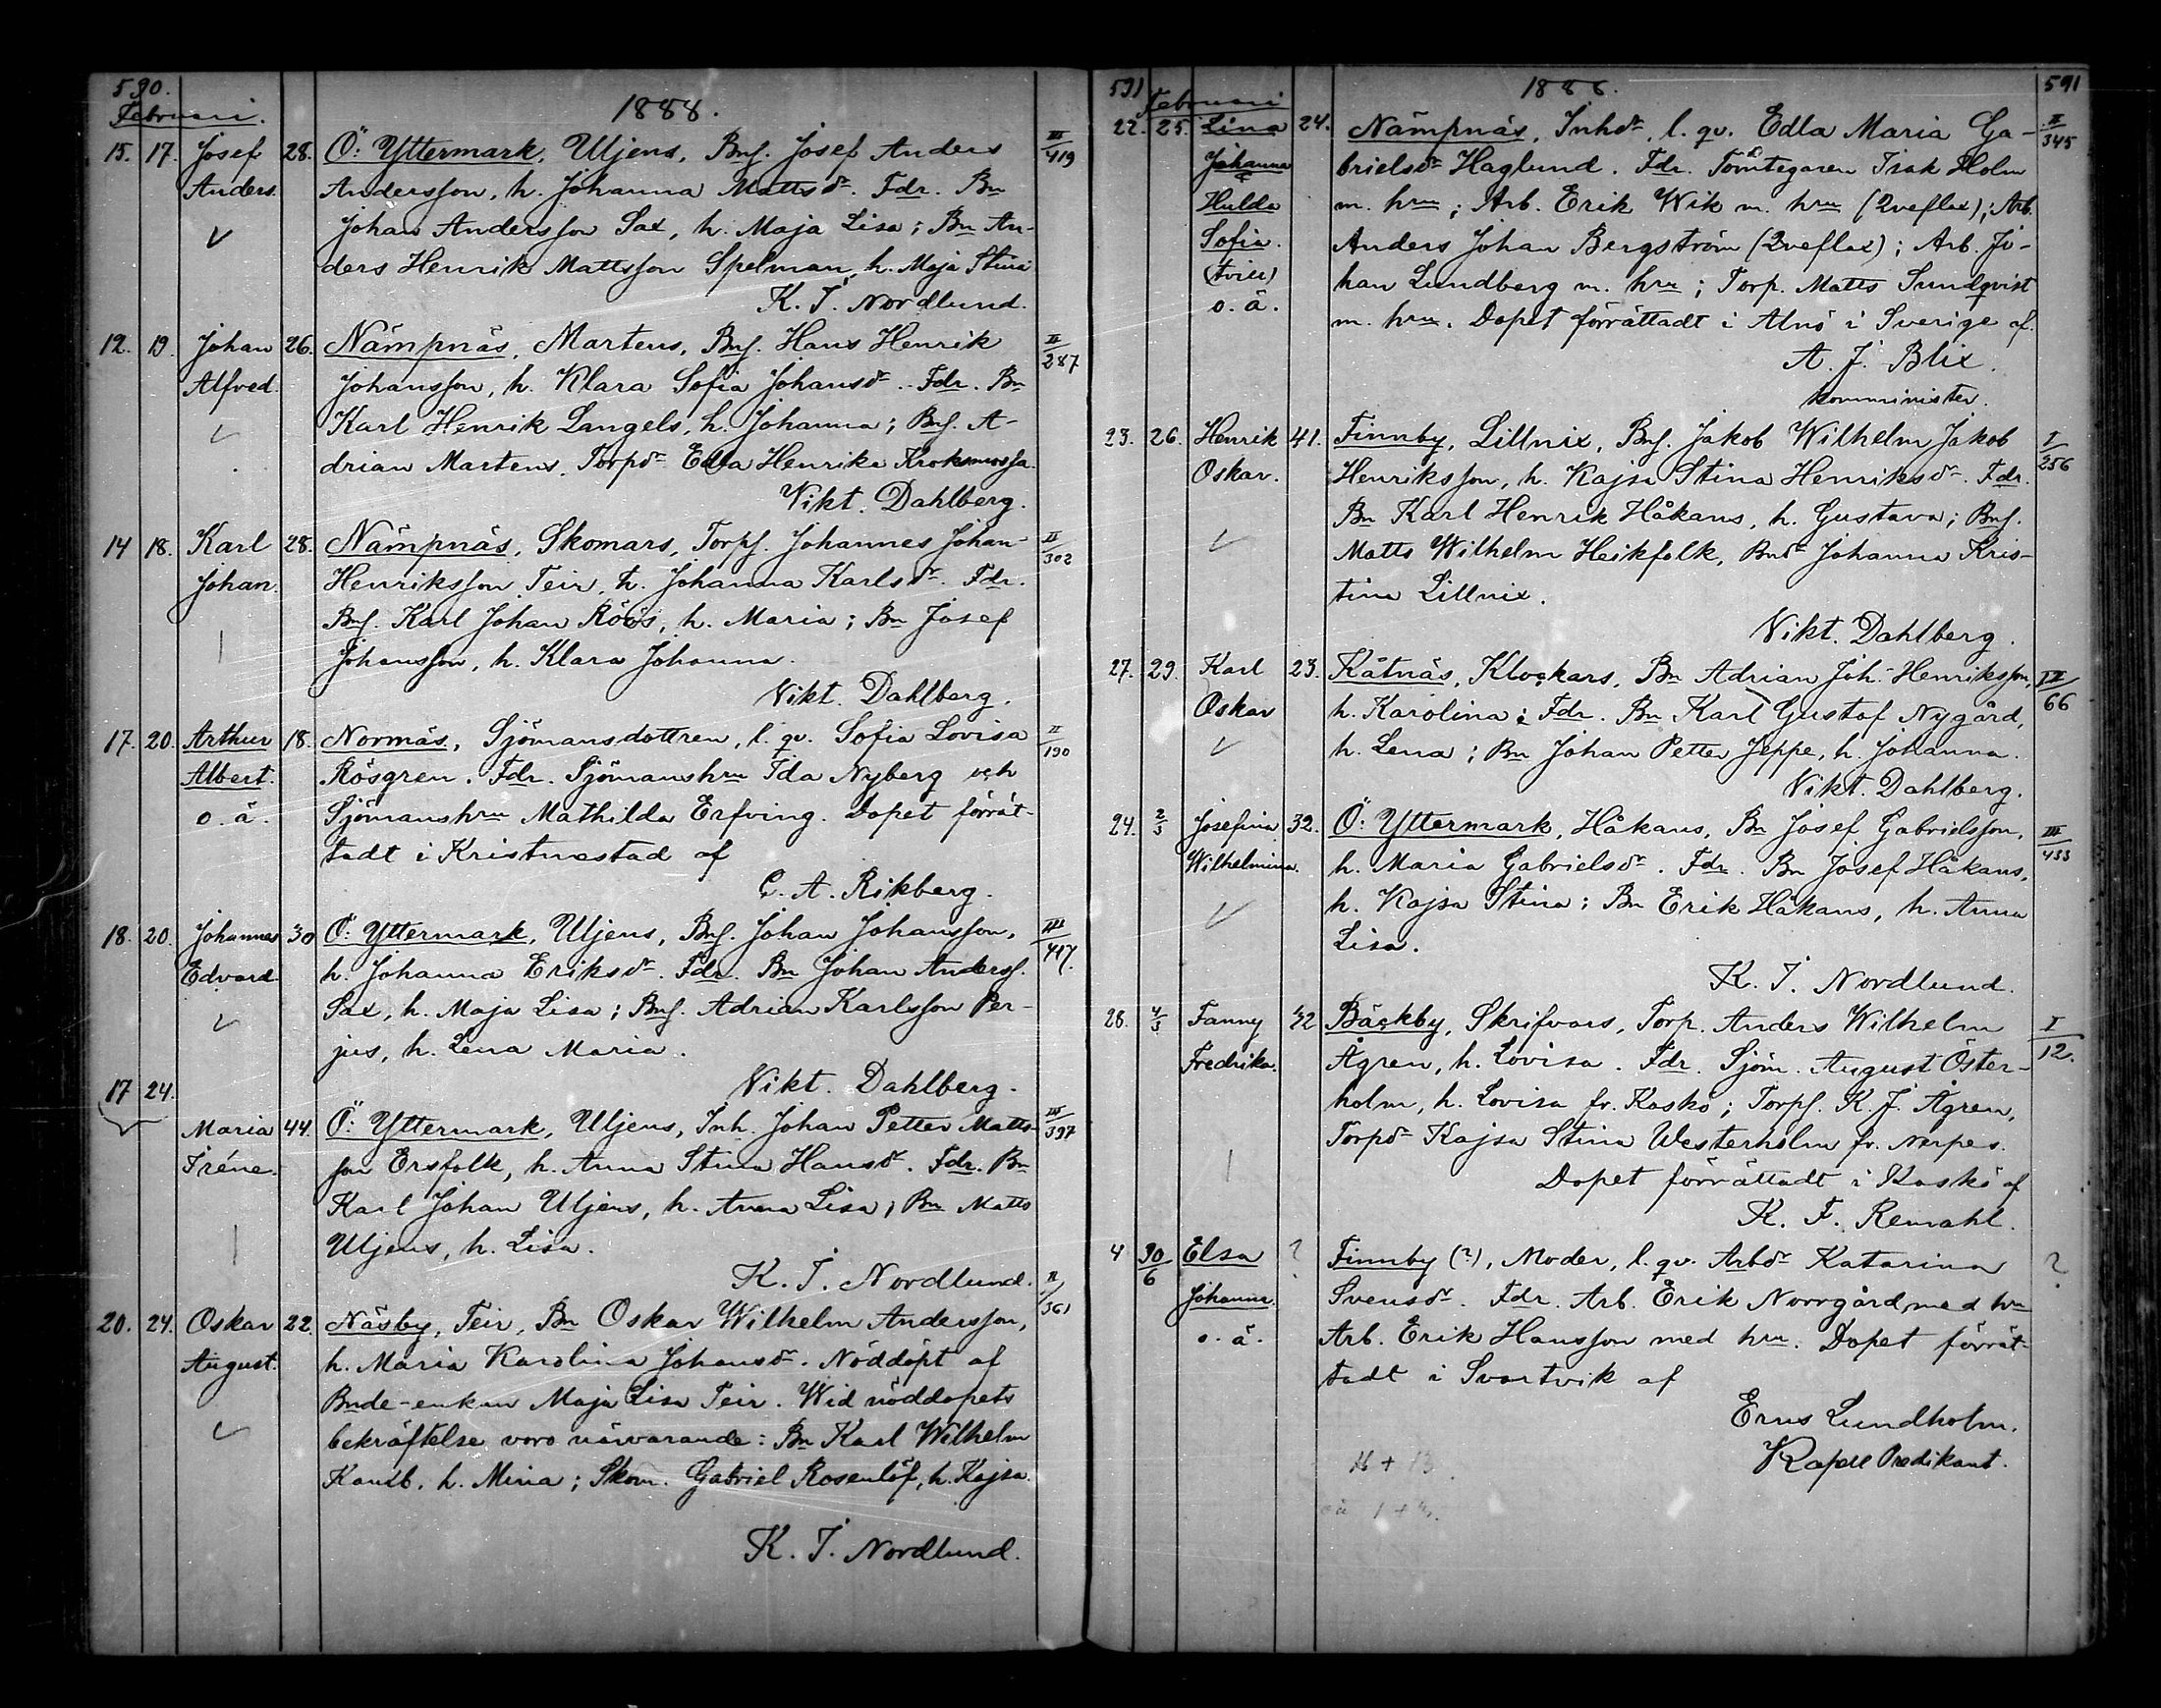 590.
Februari.
1888.
15. 17. Josef 28. Ö: Yttermark, Uljens, Bnf. Josef Anders III/419
Anders. Andersson, h. Johanna Mattsdr. Fdr. Bn
Johan Andersson Sax, h. Maja Lisa; Bn An-
ders Henrik Mattsson Spelman, h. Maja Stina
K. I. Nordlund.
12. 19. Johan 26. Nämpnäs, Martens, Bnf. Hans Henrik II/287
Alfred. Johansson, h. Klara Sofia Johansdr. Fdr. Bn
Karl Henrik Langels, h. Johanna; Bnf. A-
drian Martens, Torpdr Edla Henrika Kroksmossa.
Vikt. Dahlberg.
14 18. Karl 28. Nämpnäs, Skomars, Torpf. Johannes Johan- II/302
Johan. Henriksson Teir, h. Johanna Karlsdr. Fdr.
Bnf. Karl Johan Röös, h. Maria; Bn Josef
Johansson, h. Klara Johanna.
Vikt. Dahlberg.
17. 20. Arthur 18. Normäs, Sjömansdottren, l. qv. Sofia Lovisa II/190
Albert. Rösgren. Fdr. Sjömanshru Ida Nyberg och
o. ä. Sjömanshru Mathilda Erfving. Dopet förrät-
tadt i Kristinestad af
G. A. Rikberg.
18. 20. Johannes 30 Ö: Yttermark, Uljens, Bnf. Johan Johansson, III/417.
Edvard h. Johanna Eriksdr. Fdr. Bn Johan Anderss.
Sax, h. Maja Lisa; Bnf. Adrian Karlsson Per-
jus, h. Lena Maria.
Vikt. Dahlberg.
17 24.
Maria 44. Ö: Yttermark, Uljens, Inh. Johan Petter Matts- III/397
Iréne. son Ersfolk, h. Anna Stina Hansdr. Fdr. Bn
Karl Johan Uljens, h. Anna Lisa; Bn Matts
Uljens, h. Lisa.
K. I. Nordlund.
20. 24. Oskar 22. Näsby, Teir, Bn Oskar Wilhelm Andersson, II/361
August. h. Maria Karolina Johansdr. Nöddöpt af
Bnde-enkan Maja Lisa Teir. Wid nöddopets
bekräftelse voro närvarande: Bn Karl Wilhelm
h. Mina; Skom. Gabriel Rosenlöf, h. Kajsa.
K. I. Nordlund.
591 1888. 591
Februari
22. 25. Lina 24. Nämpnäs, Inhdr, l. qv. Edla Maria Ga- II/345
Johanna brielsdr Haglund. Fdr. Tomtegaren Isak Holm
& m. hru; Arb. Erik Wik m. hru (2veflax); Arb.
Hulda
Sofia. Anders Johan Bergström (2veflax); Arb. Jo-
(tvill) han Lundberg m. hru; Torp. Matts Sundqvist
o. ä. m. hru. Dopet förrättadt i Alnö i Sverige af
A. J. Blix.
Komminister.
23. 26. Henrik 41. Finnby, Lillnix, Bnf. Jakob Wilhelm Jakob I/256
Oskar. Henriksson, h. Kajsa Stina Henriksdr. Fdr.
Bn Karl Henrik Håkans, h. Gustava; Bnf.
Matts Wilhelm Heikfolk, Bndr Johanna Kris-
tina Lillnix.
Vikt. Dahlberg.
27. 29. Karl 23. Kåtnäs, Klockars, Bn Adrian Joh. Henriksson, III/66
Oskar h. Karolina; Fdr. Bn Karl Gustaf Nygård,
h. Lena; Bn Johan Petter Jeppe, h. Johanna.
Vikt. Dahlberg.
24. 2/3 Josefina 32. Ö: Yttermark, Håkans, Bn Josef Gabrielsson, III/433
Wilhelmina. h. Maria Gabrielsdr. Fdr. Bn Josef Håkans,
h. Kajsa Stina; Bn Erik Håkans, h. Anna
Lisa.
K. I. Nordlund.
28. 4/3 Fanny 32 Bäckby, Skrifvars, Torp. Anders Wilhelm I/12.
Fredrika. Ågren, h. Lovisa. Fdr. Sjöm. August Öster-
holm, h. Lovisa fr. Kaskö; Torpf. K. J. Ågren,
Torpdr Kajsa Stina Westerholm fr. Nerpes.
Dopet förrättadt i Kaskö af
K. F. Renvahl.
4 30/6 Elsa ? Finnby (?), Moder, l. qv. Arbdr Katarina ?
Johanna. Svensdr. Fdr. Arb. Erik Norrgård med hru
o. ä. Arb. Erik Hansson med hru. Dopet förrät-
tadt i Svartvik af
Erns Lundholm.
Kapell Predikant.